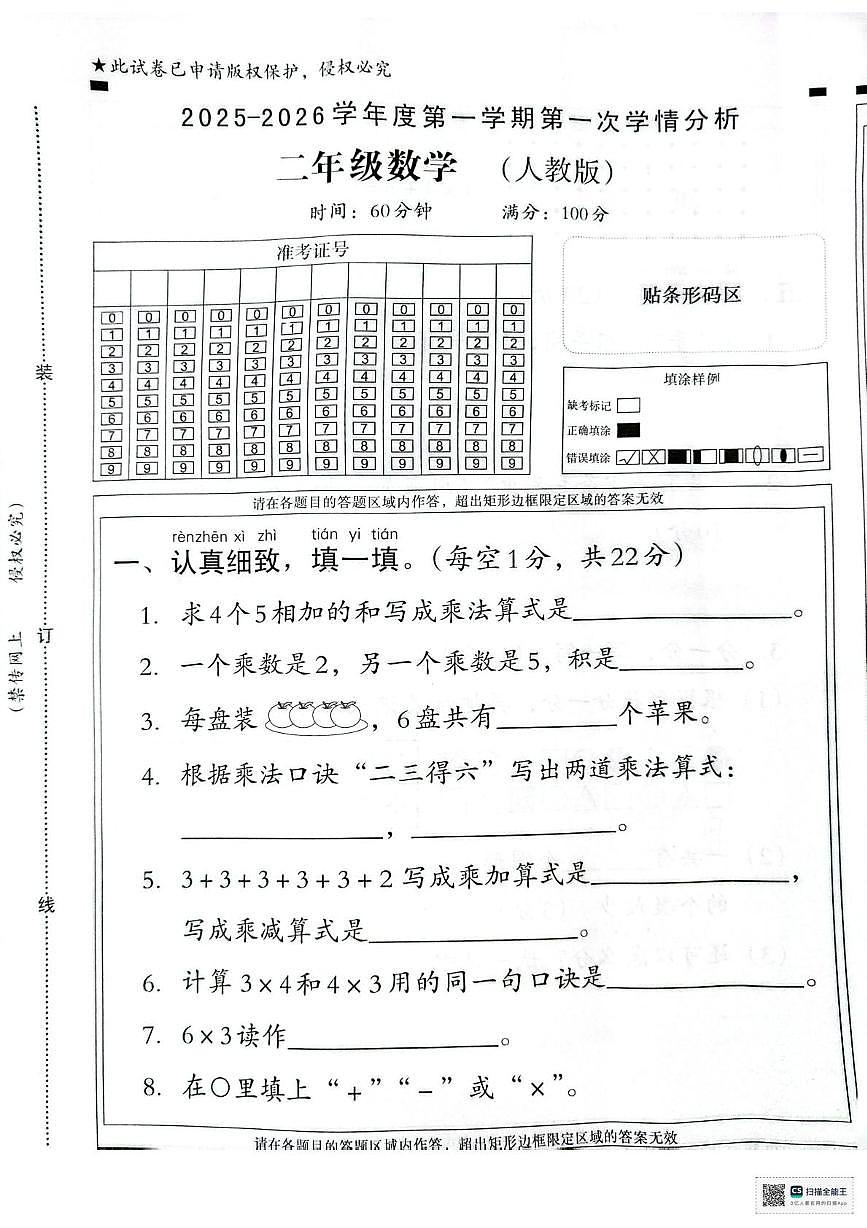 ★此试卷已申请版权保护，侵权必究
2025-2026学年度第一学期第一次学情分析
二年级数学 （人教版）
时间：60分钟 满分：100分
准考证号
0 0 0 0 0 0 0 0 0 0 0 0
1 1 1 1 1 1 1 1 1 1 1 1
2 2 2 2 2 2 2 2 2 2 2 2
3 3 3 3 3 3 3 3 3 3 3 3
4 4 4 4 4 4 4 4 4 4 4 4
5 5 5 5 5 5 5 5 5 5 5 5
6 6 6 6 6 6 6 6 6 6 6 6
7 7 7 7 7 7 7 7 7 7 7 7
8 8 8 8 8 8 8 8 8 8 8 8
9 9 9 9 9 9 9 9 9 9 9 9
贴条形码区
填涂样例
缺考标记
正确填涂
错误填涂
装
订
线
（禁传网上 侵权必究）
请在各题目的答题区域内作答，超出矩形边框限定区域的答案无效
rènzhēn xì zhì tián yi tián
一、认真细致，填一填。（每空1分，共22分）
1. 求4个5相加的和写成乘法算式是____________。
2. 一个乘数是2，另一个乘数是5，积是________。
3. 每盘装，6盘共有________个苹果。
4. 根据乘法口诀“二三得六”写出两道乘法算式：
____________，____________。
5. 3+3+3+3+3+2写成乘加算式是____________，
写成乘减算式是____________。
6. 计算3×4和4×3用的同一句口诀是____________。
7. 6×3读作____________。
8. 在○里填上“+”“-”或“×”。
请在各题目的答题区域内作答，超出矩形边框限定区域的答案无效
CS 扫描全能王
3亿人都在用的扫描App